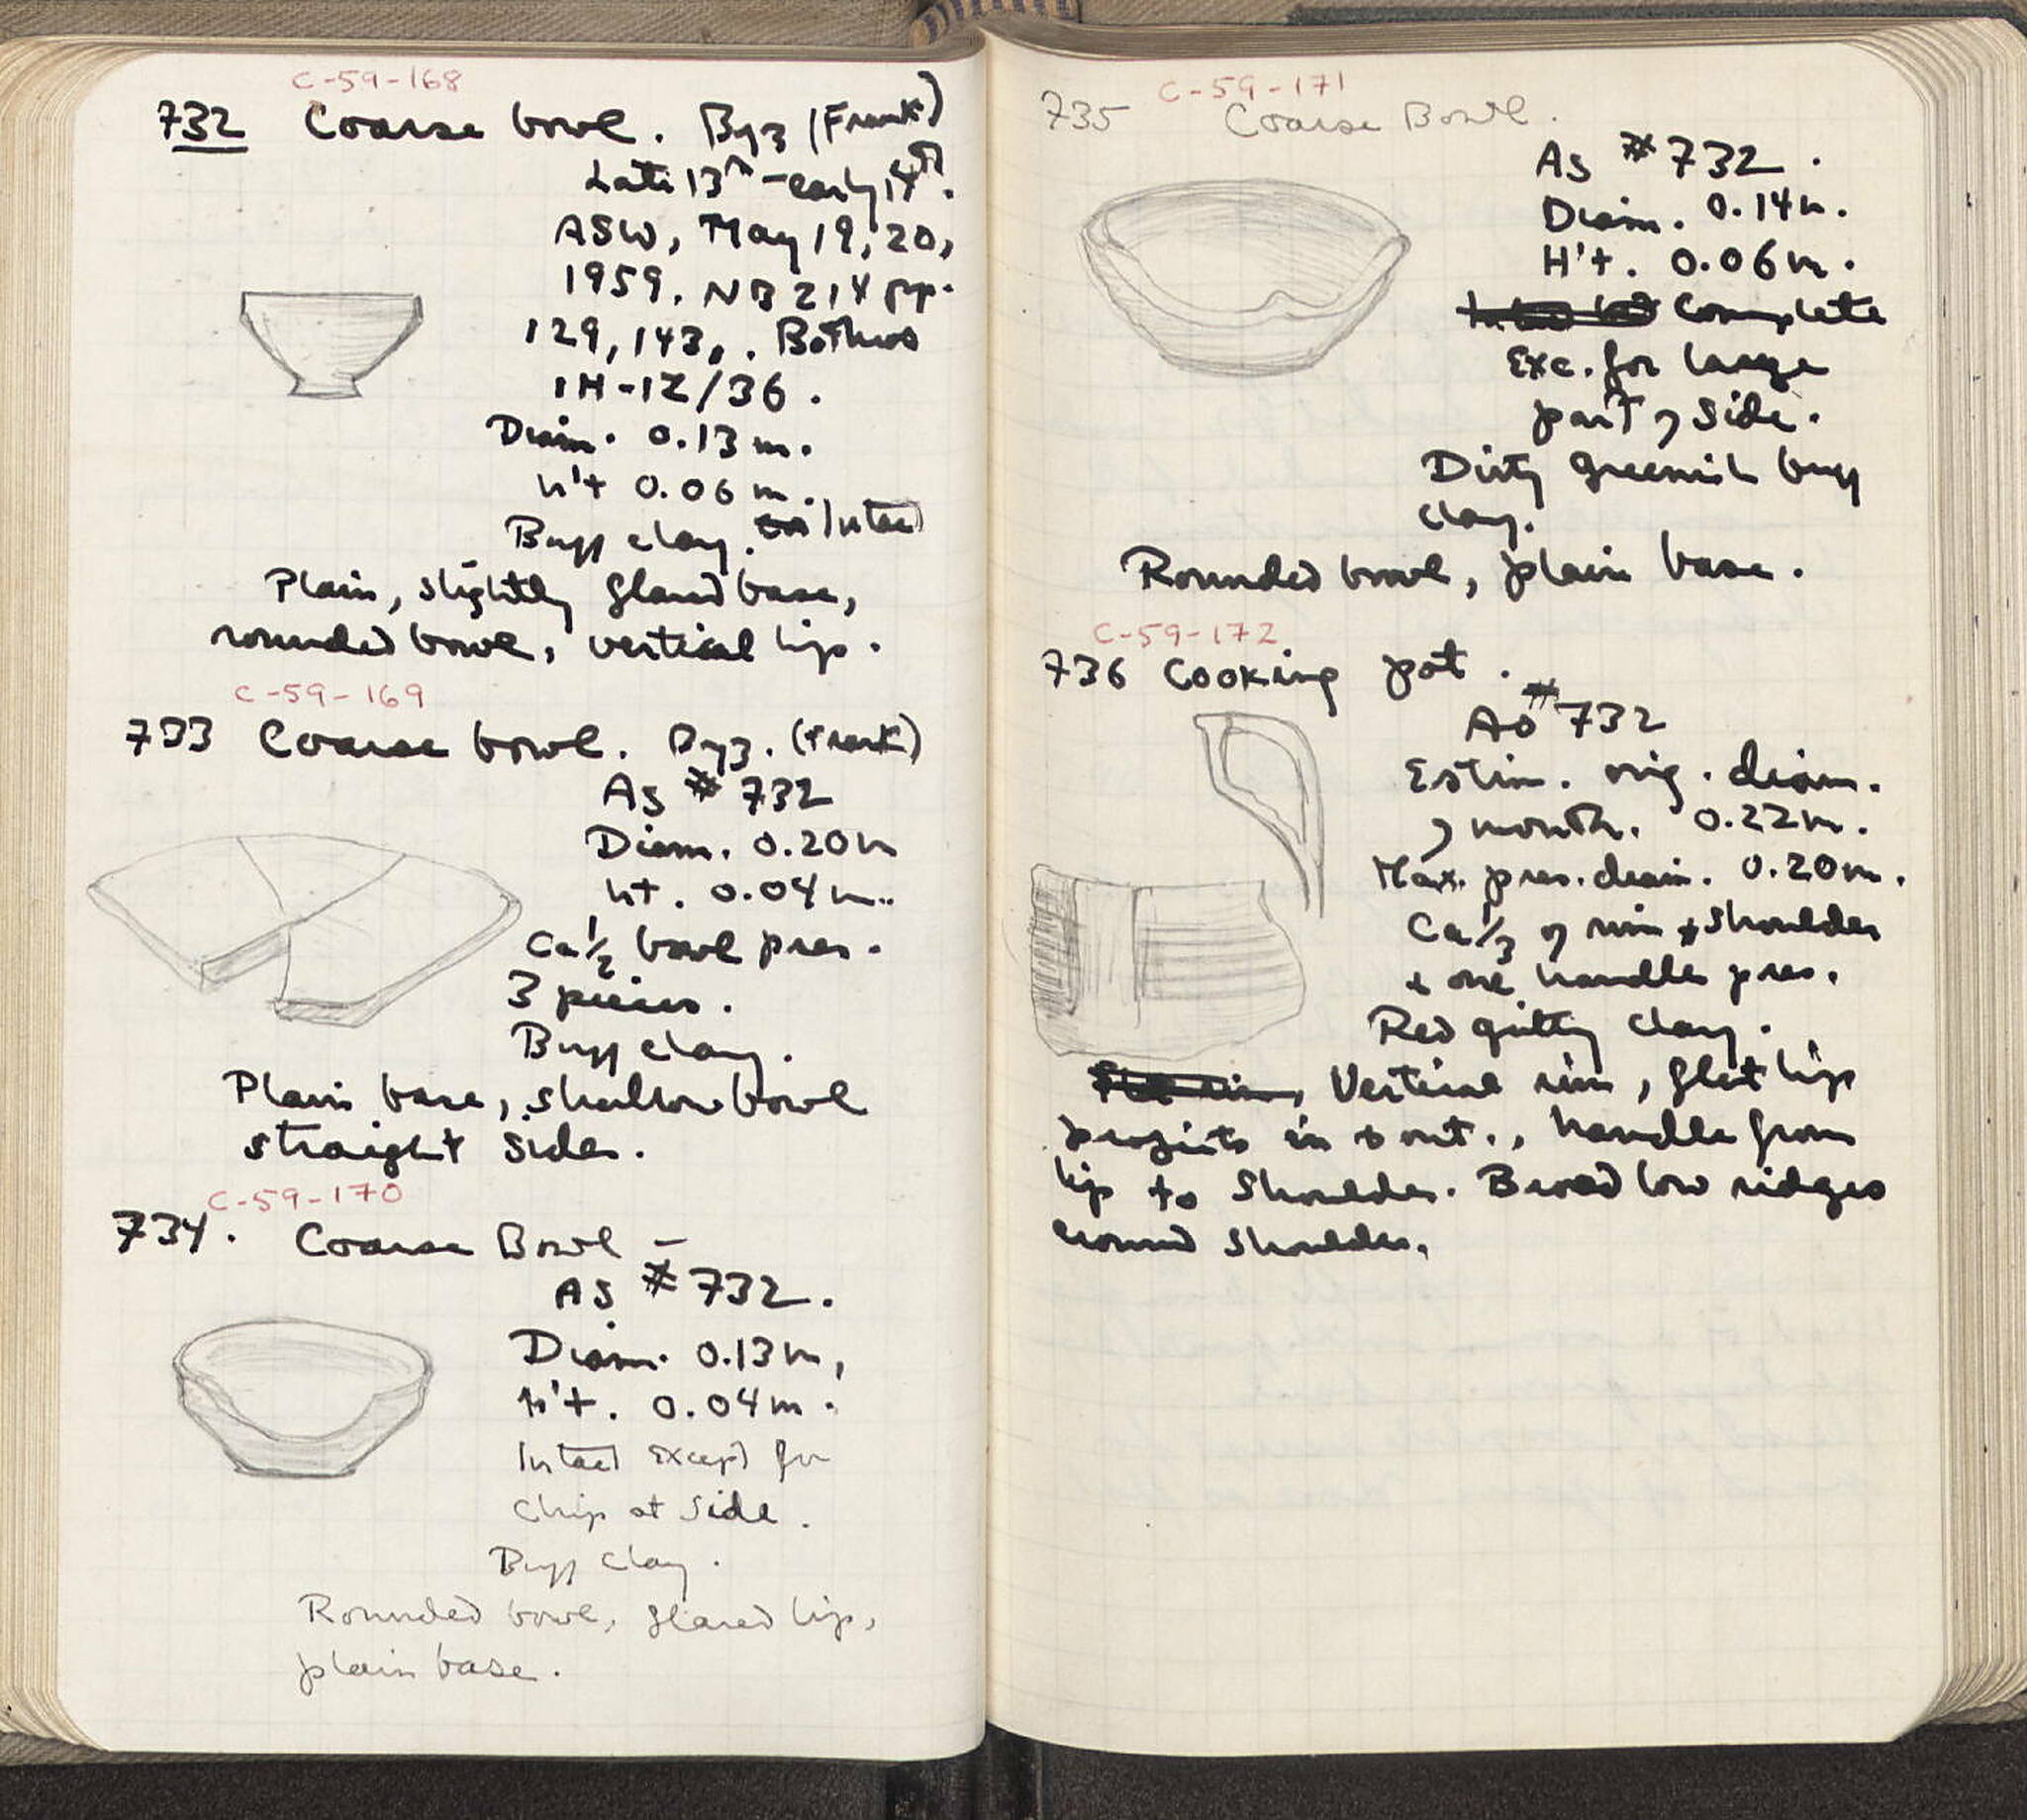 C-59-168
732 Coarse bowl. Byz (Frank)
Late 13th - early 14th.
ASW, May 19, 20,
1959. NB 214 pp.
129, 143, . Bothros
1H-12/36.
Diam. 0.13 m.
h't 0.06 m.
Buff clay. Intact
Plain, slightly flared base,
rounded bowl, vertical lip.
C-59-169
733 Coarse bowl. Byz. (Frank)
As # 732
Diam. 0.20 m
ht. 0.04 m..
Ca 1/2 bowl pres.
3 pieces.
Buff clay.
Plain base, shallow bowl
straight sides.
C-59-170
734. Coarse Bowl –
As # 732.
Diam. 0.13 m,
h't. 0.04 m.
Intact except for
chip at side.
Buff clay.
Rounded bowl, flared lip,
plain base.
C-59-171
735 Coarse Bowl.
As # 732.
Diam. 0.14 m.
H't. 0.06 m.
Complete
Exc. for large
part of side.
Dirty greenish buff
clay.
Rounded bowl, plain base.
C-59-172
736 Cooking pot.
As # 732
Estim. orig. diam.
of mouth. 0.22 m.
Max. pres. diam. 0.20 m.
Ca 1/3 of rim + shoulder
+ one handle pres.
Red gritty clay.
Vertical rim, flat lip
projects in + out., handle from
lip to shoulder. Broad low ridges
around shoulder.